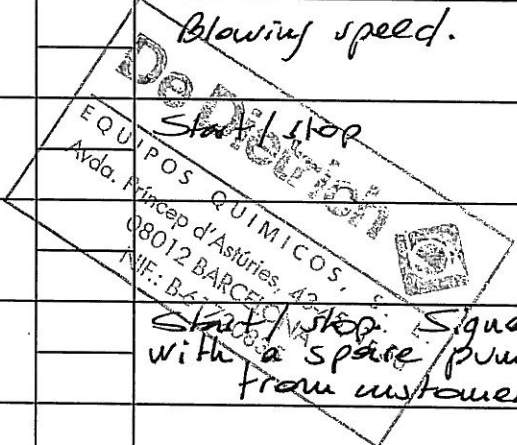 Blowing speed.
De Dietrich
Start / stop
EQUIPOS QUIMICOS, S.
Avda. Príncep d'Astúries, 43-45
08012 BARCELONA
NIF.: B-
Start / stop. Signa
with a spare pum
from customer